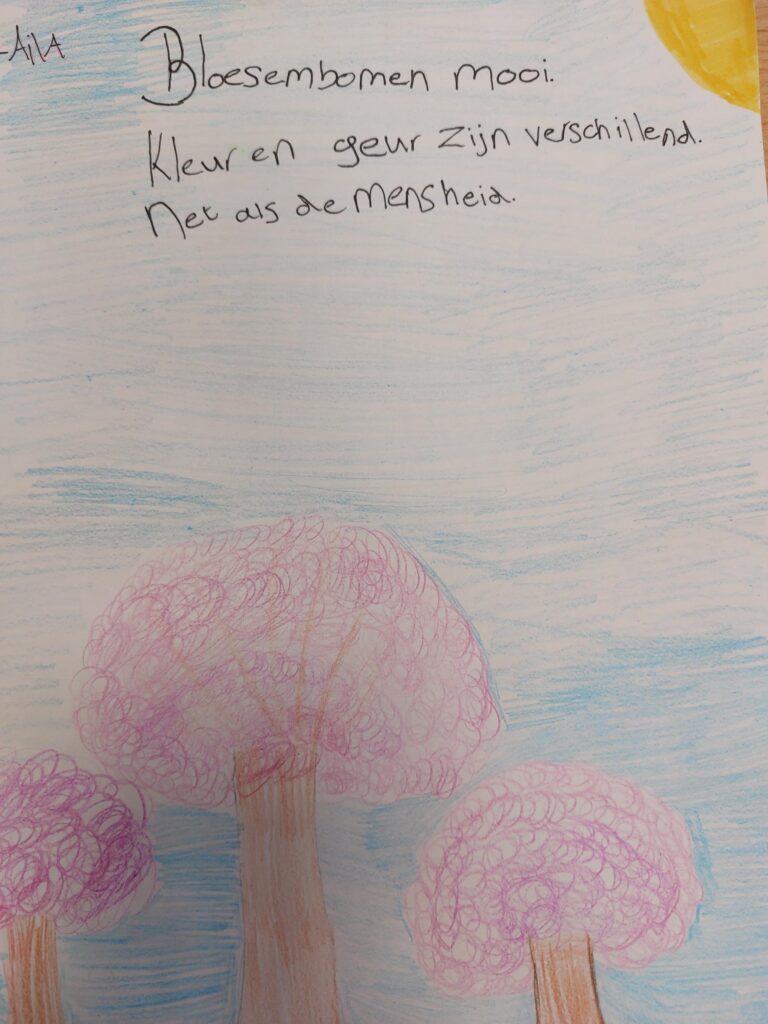 -AilA
Bloesembomen mooi.
Kleur en geur zijn verschillend.
Net als de Mensheid.